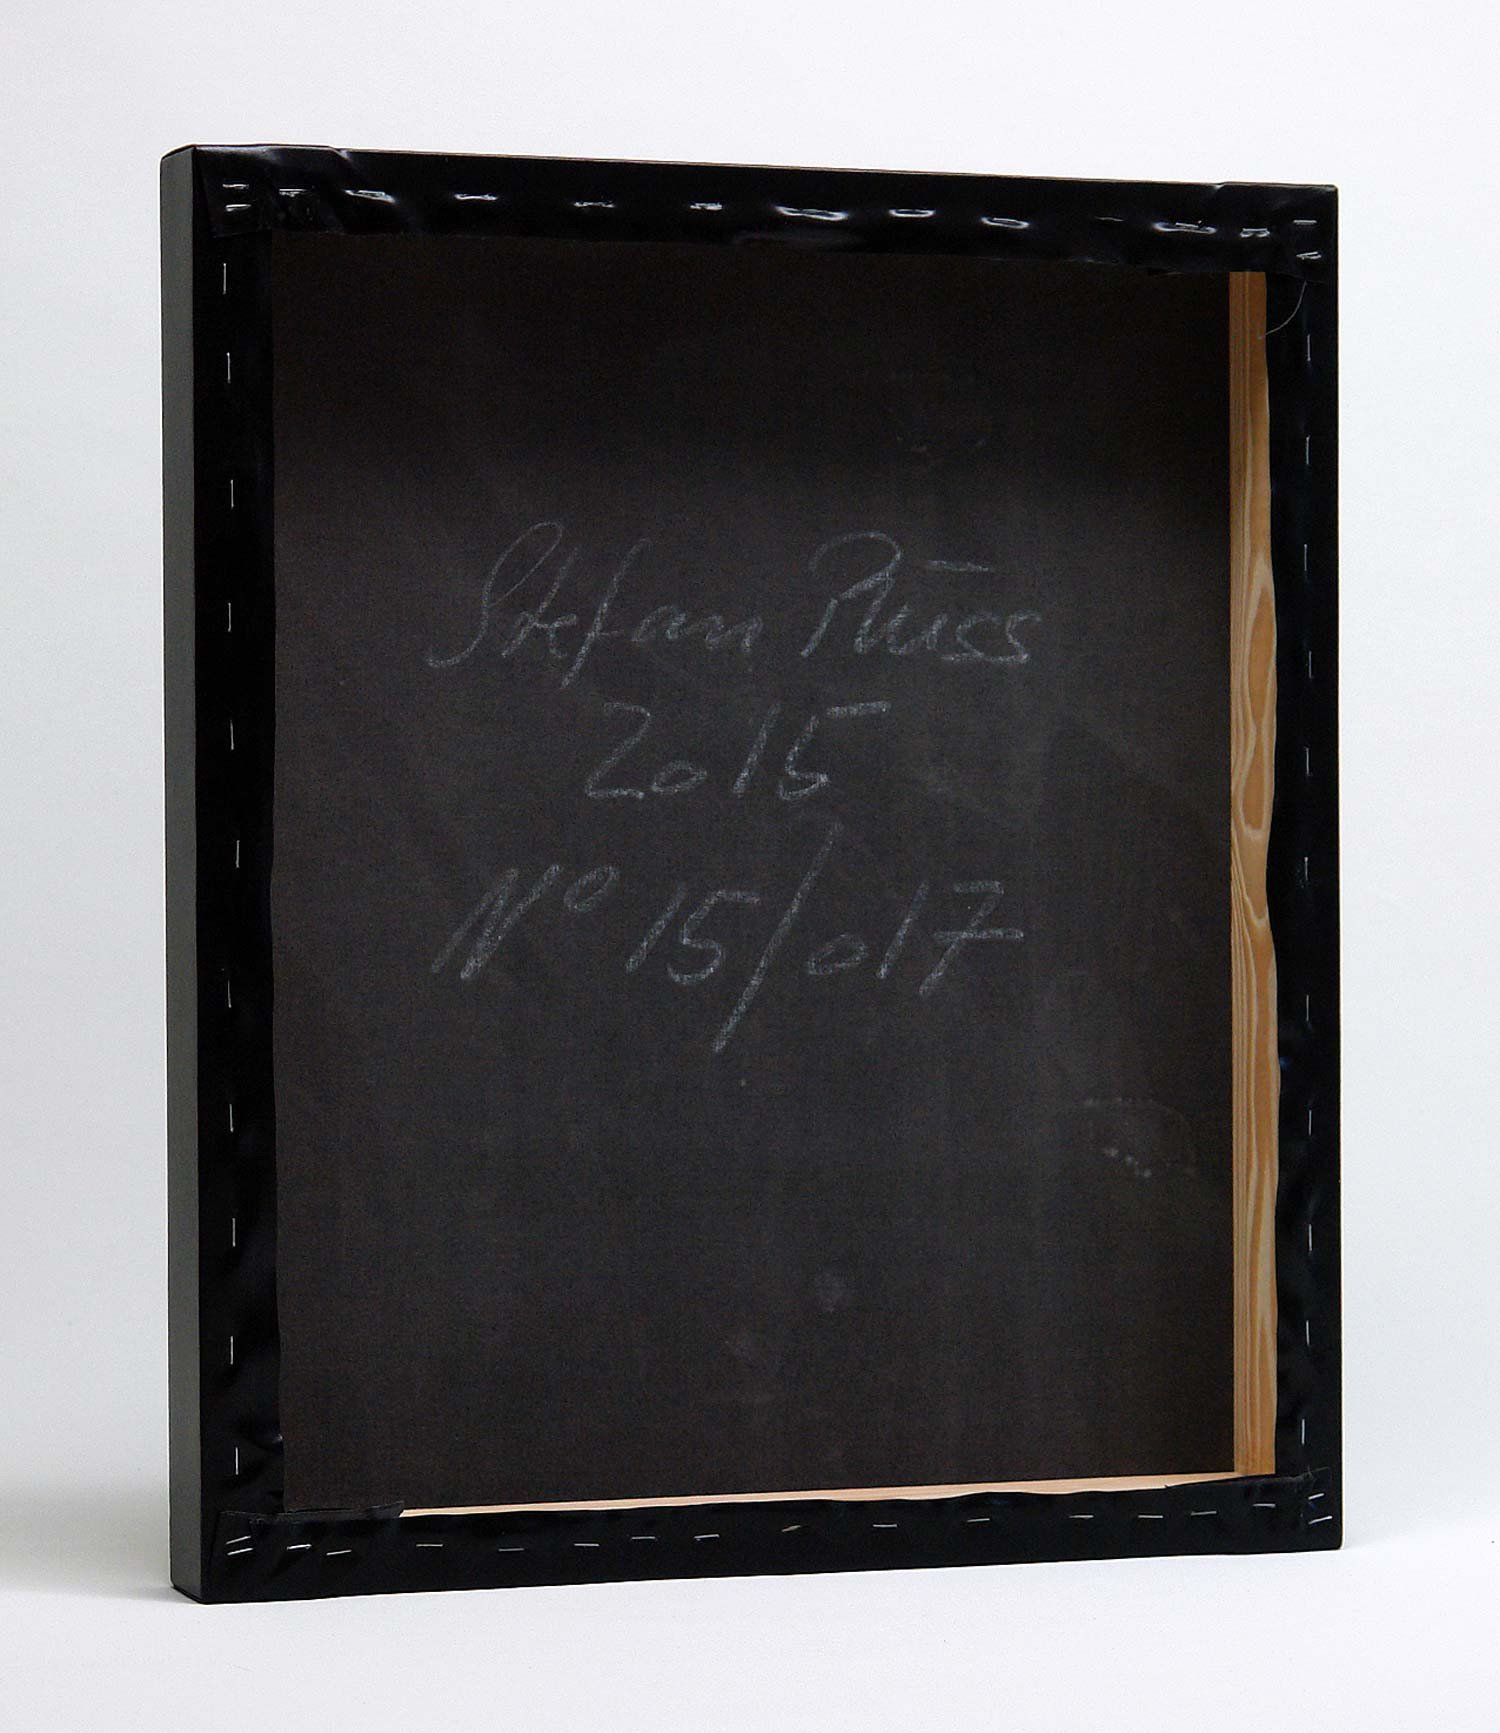 Stefan Plüss
2015
Nº 15/017